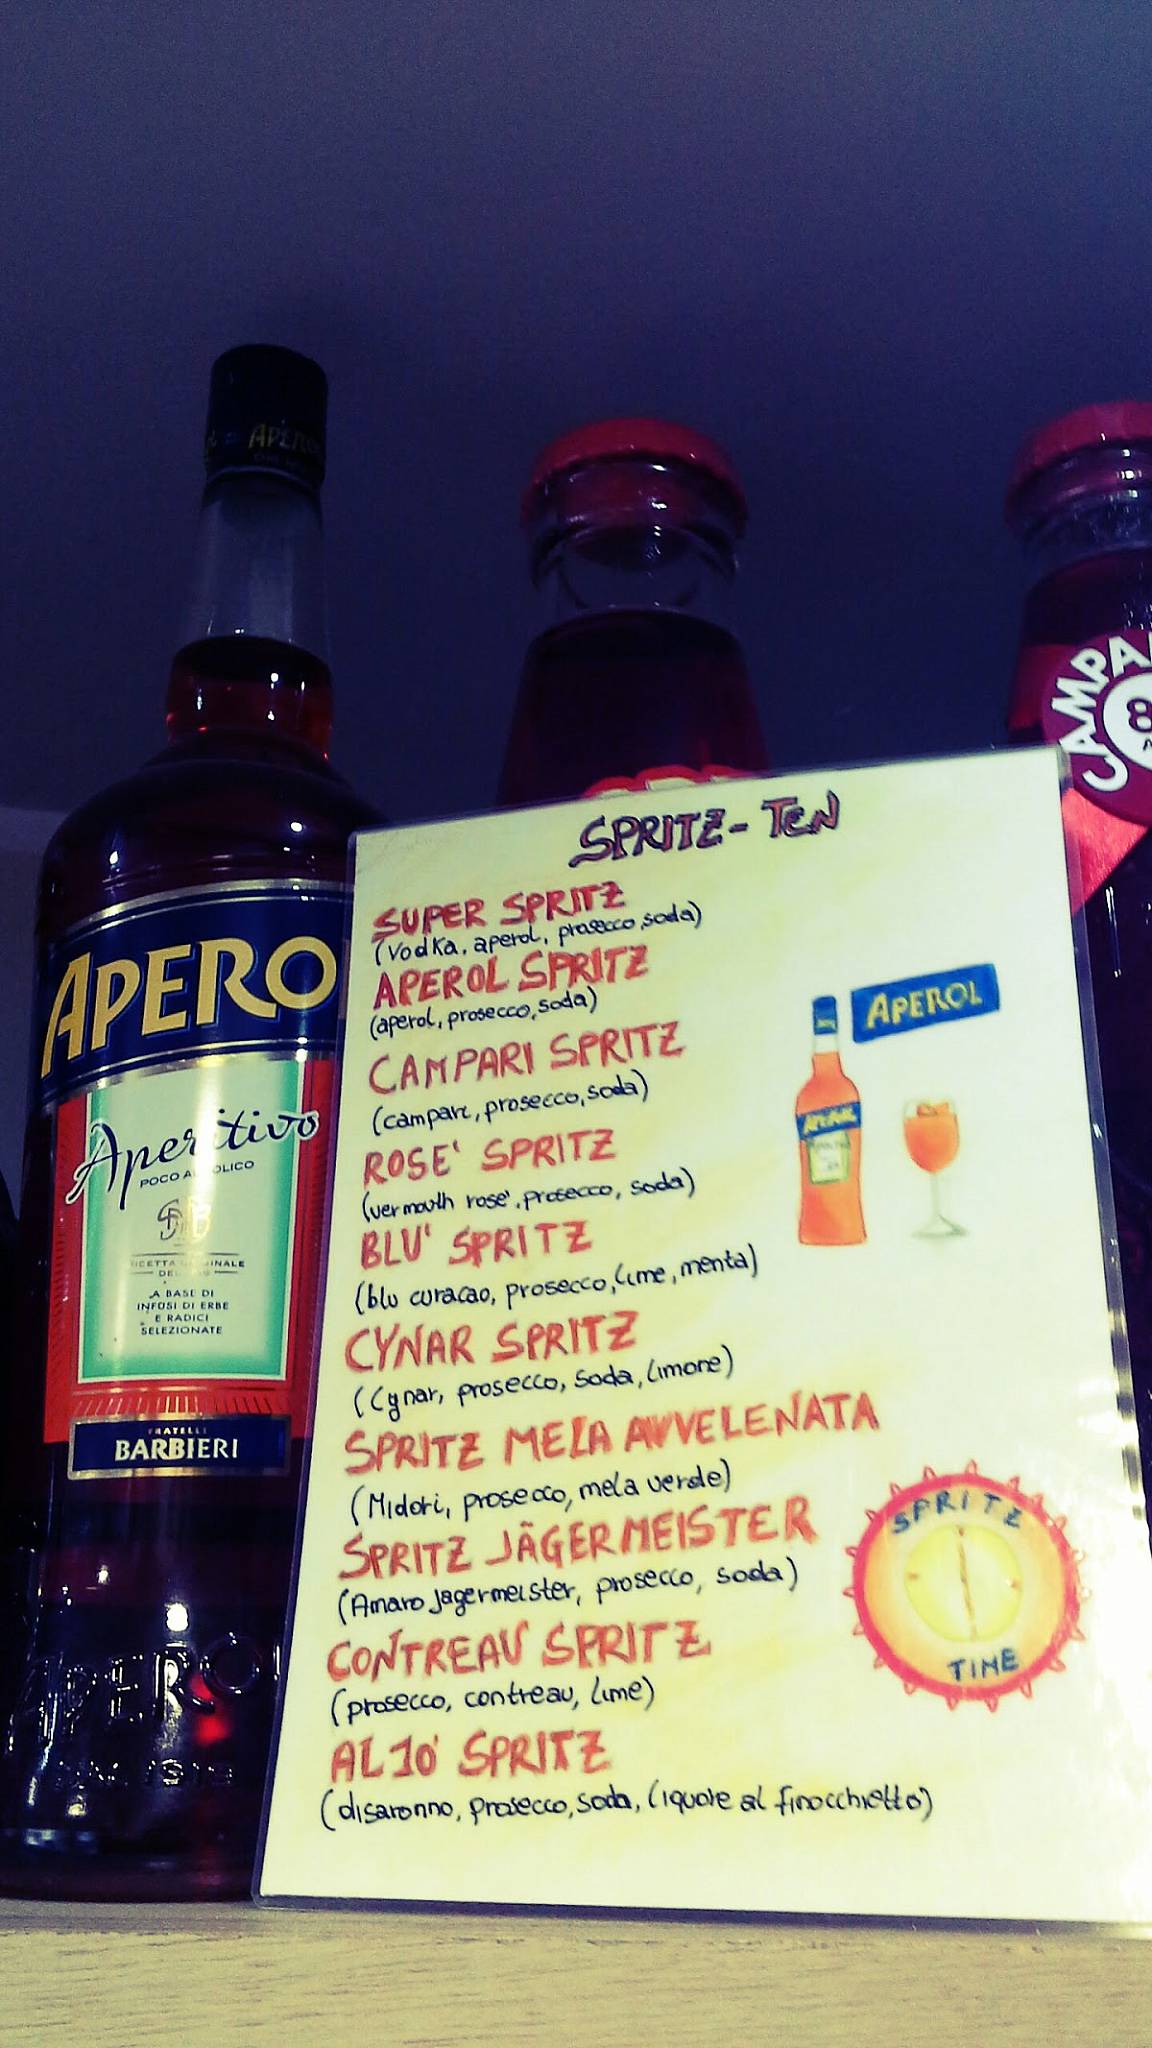 APEROL
APERO
Aperitivo
POCO ALCOLICO
A BASE DI
INFUSI DI ERBE
E RADICI
SELEZIONATE
FRATELLI
BARBIERI
APERO
CAMPA
SPRITZ-TEN
SUPER SPRITZ
(vodka, aperol, prosecco, soda)
APEROL SPRITZ
(aperol, prosecco, soda)
CAMPARI SPRITZ
(campari, prosecco, soda)
ROSE' SPRITZ
(vermouth rose', prosecco, soda)
BLU' SPRITZ
(blu curacao, prosecco, lime, menta)
CYNAR SPRITZ
(Cynar, prosecco, soda, limone)
SPRITZ MELA AVVELENATA
(Midori, prosecco, mela verde)
SPRITZ JÄGERMEISTER
(Amaro Jagermeister, prosecco, soda)
CONTREAU SPRITZ
(prosecco, contreau, lime)
ALJO' SPRITZ
(disaronno, prosecco, soda, liquore al finocchietto)
APEROL
APEROL
SPRITZ
TIME